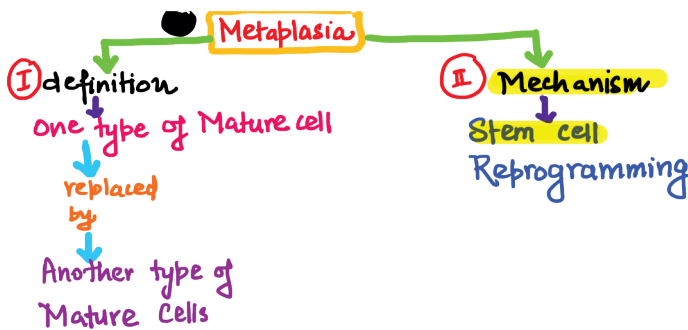 Metaplasia
I definition
One type of Mature cell
replaced
by
Another type of
Mature Cells
II Mechanism
Stem cell
Reprogramming